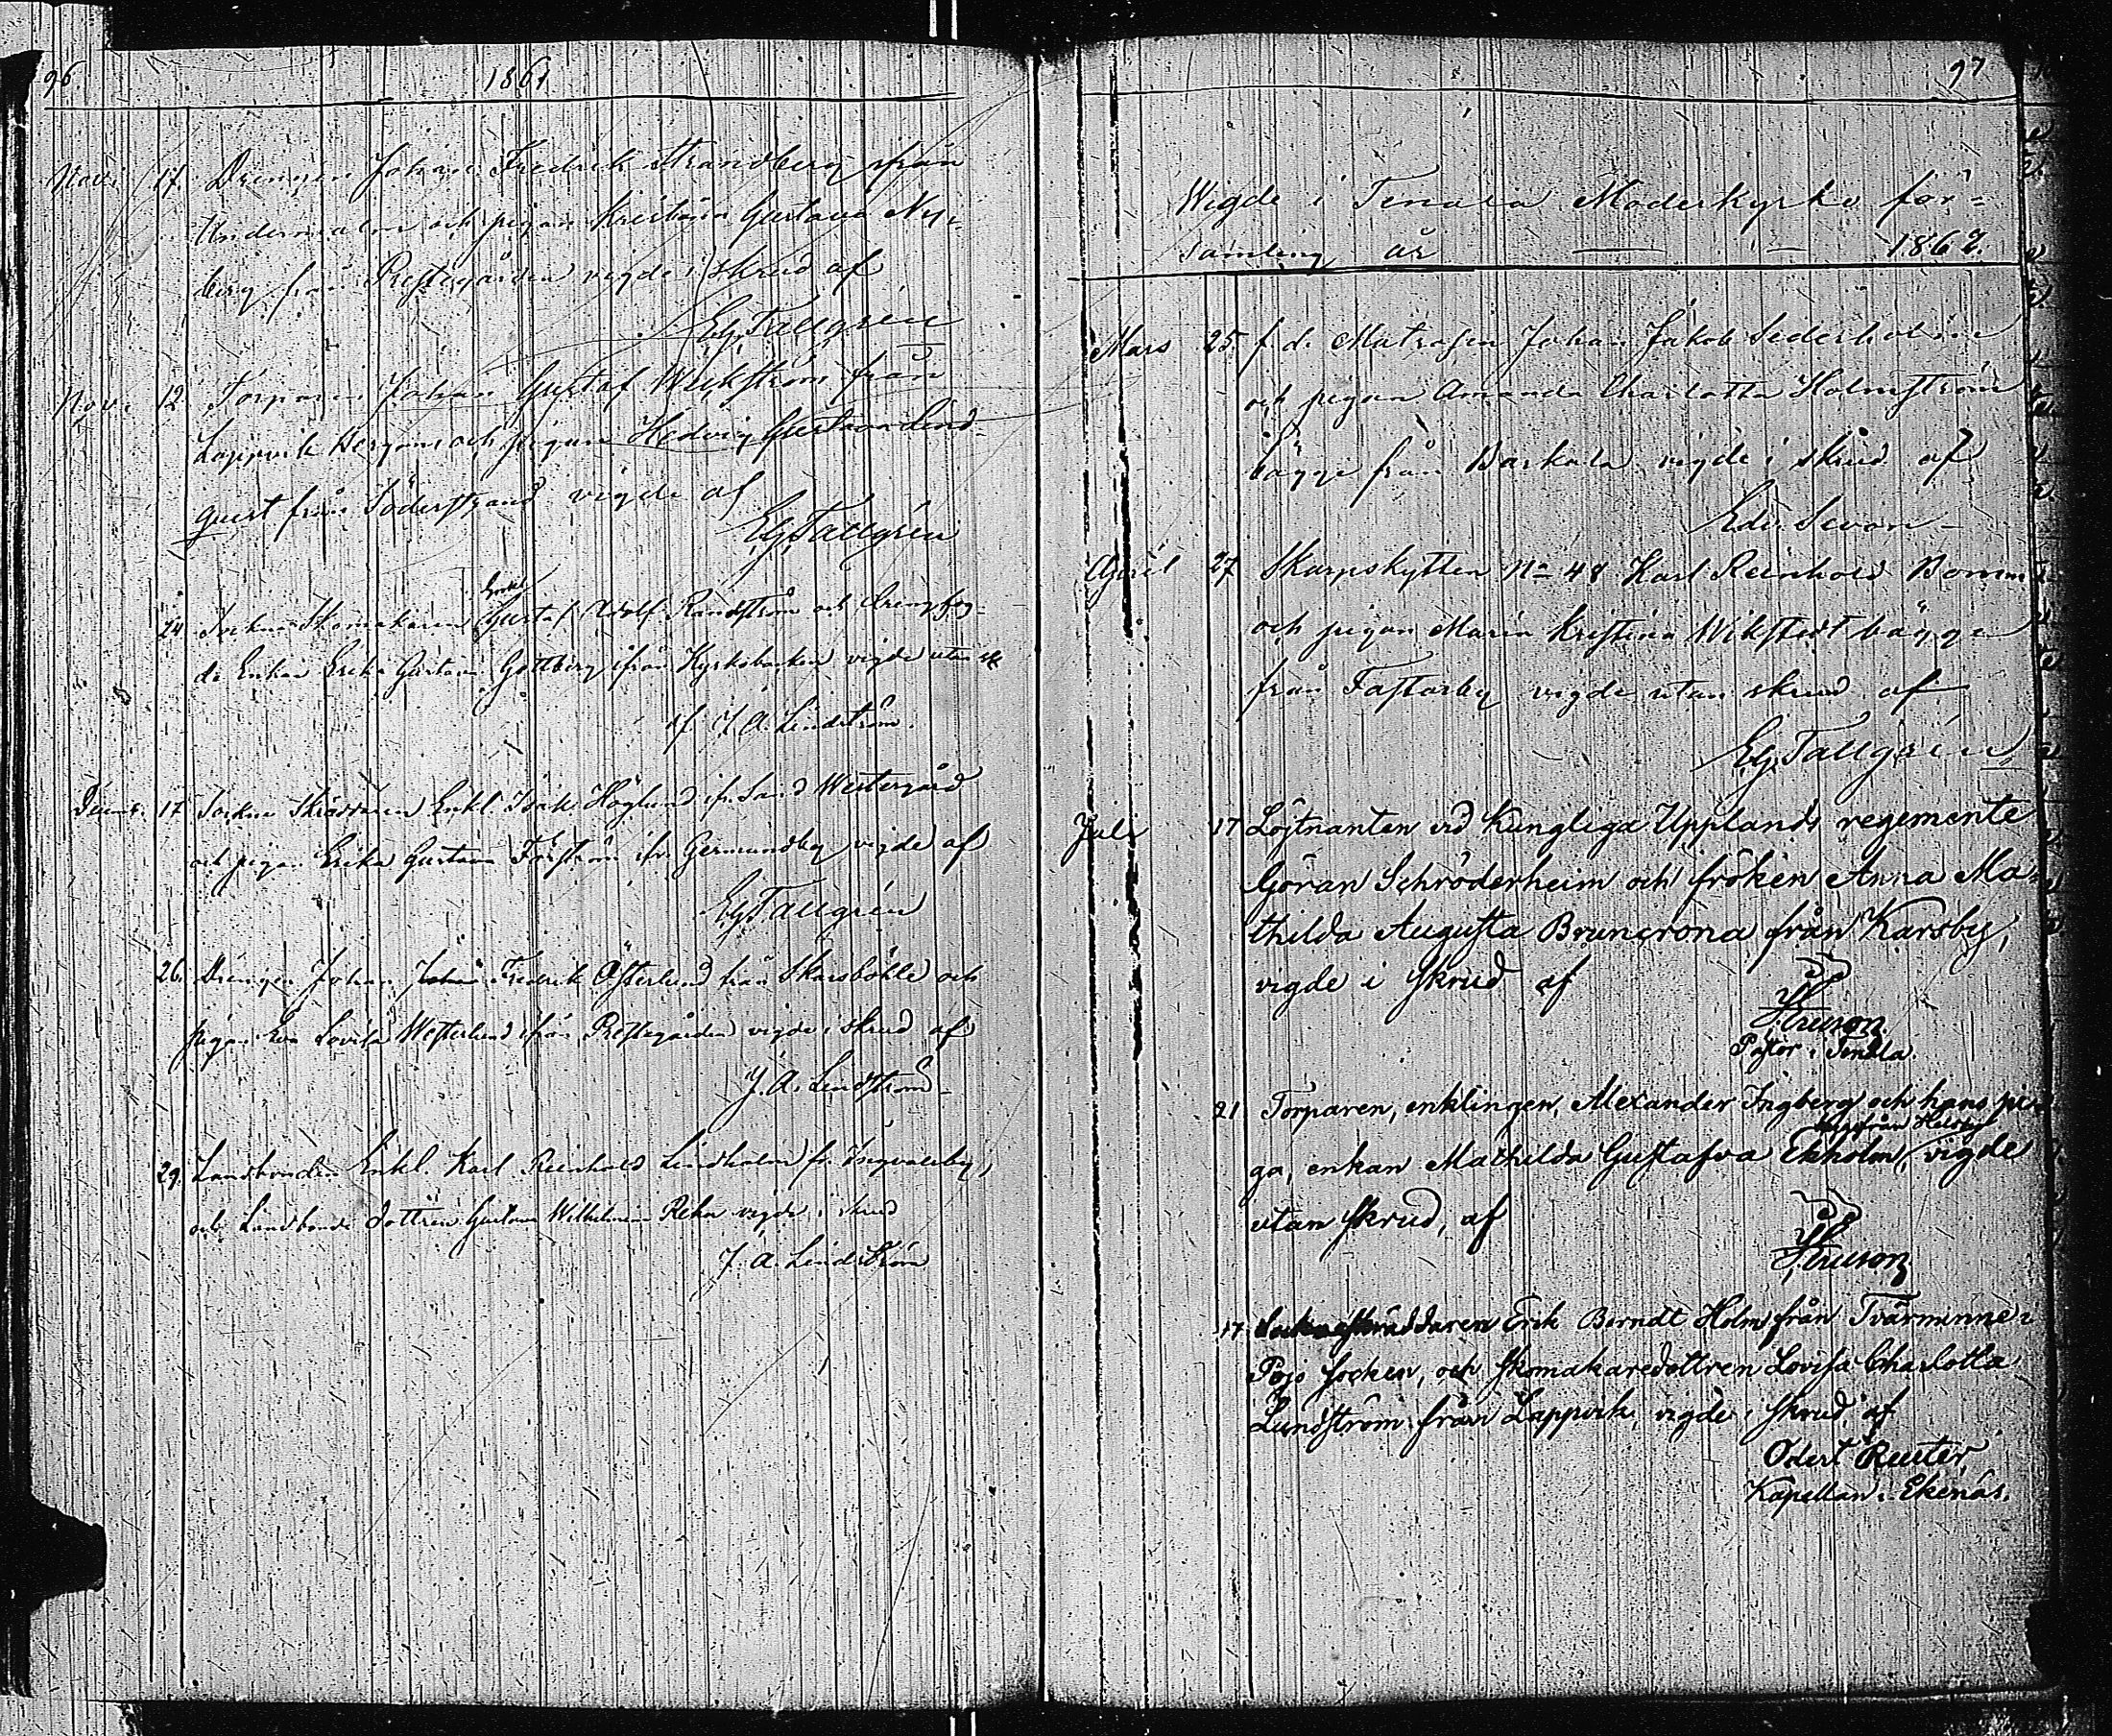 96.
1861
Nov. 17. Drengen Johan Fredrik Strandberg från
och pigan Kristina Gustava Ny-
berg från Prestegården vigde i skrud af
EG Tallgrén
Nov. 12. Torparen Johan Gustaf Wickström från
Lappvik Bergans och pigan Hedvig Gustava Lind-
qvist från Söderstrand vigde af
EG Tallgrén
24. Sockne Skomakaren Enkl Gustaf Adolf Randström och Drengfog-
de Enkan Erika Gustava Gottberg ifrån Kyrkobacken vigde utan sk
af J. A. Lindström.
Decemb. 17 Sockne Skräddaren Enkl. Isak Höglund ifr. Sand Westergård
och pigan Erika Gustava Forsström ifr. Germundby vigde af
EG Tallgrén
26. Drengen Johan Fredrik Österlund från Skarsböhle och
pigan Eva Lovisa Westerlund ifrån Prestegården vigde i skrud af
J. A. Lindström
29. Landbonden Enkl. Karl Reinhold Lindholm fr. Ingvalsby,
och Landbonde dottren Gustava Wilhelmina vigde i skrud
J. A. Lindström
97
Wigde i Tenala Moderkyrko för-
samling år — — 1862.
Mars 25. f. d. Matrosen Johan Jakob Sederholm
och pigan Amanda Charlotta Holmström
bägge från Baskala vigde i skrud af
Edv. Sevon
April 27 Skarpskytten No 48 Karl Reinhold Bomm
och pigan Maria Kristina Wikstedt bägge
från Fastarby vigde utan skrud af
EG Tallgrén
Juli 17 Löjtnanten vid Kungliga Upplands regemente
Göran Schröderheim och fröken Anna Ma-
thilda Augusta Bruncrona från Karsby,
vigde i skrud af
Pastor i Tenala.
21 Torparen, enklingen, Alexander Ingberg och hans pi-
från
ga, enkan Mathilda Gustafva Ekholm, vigde
utan skrud, af
17. Sockneskräddaren Erik Berndt Holm från Tvärminne i
Pojo socken, och skomakaredottren Lovisa Charlotta
Lundström från Lappvik, vigde i skrud af
Odert Reuter
Kapellan i Ekenäs.